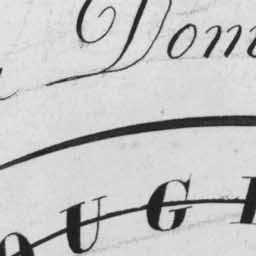 Dom
OUG